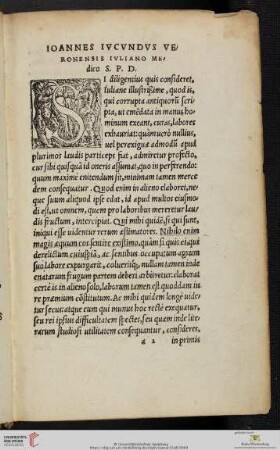 IOANNES IVCVNDVS VE-
RONENSIS IVLIANO ME-
dico S. P. D.
SI diligentius quis consideret,
Iuliane illustrissime, quod is,
qui corrupta antiquorũ scri-
pta, ut emēdata in manus ho-
minum exeant, curas, labores
exhauriat: quànuero nullius,
uel perexiguæ admodũ apud
plurimos laudis particeps fiat, admiretur profecto,
cur sibi quisquā id oneris assumat, quo in perferendo:
quum maxime enitendum sit, minimam tamen merce
dem consequatur. Quod enim in alieno elaboret, ne-
que suum aliquid ipse edat, id apud multos eiusmo-
di est, ut omnem, quem pro laboribus mereretur lau-
dis fructum, intercipiat. Qui mihi quidē, si qui sunt,
iniqui esse uidentur rerum æstimatores. Nihilo enim
magis æquum eos sentire existimo, quàm si quis ei, qui
derelictum cuiuspiā, ac sentibus occupatum agrum
suo labore expurgarit, colueritq́;, nullam tamen inde
enatarum frugum partem deberi arbitretur: elaborat
certè is in alieno solo, laborum tamen est quoddam iu
re præmium cōstitutum. Ac mihi quidem longè uide-
tur secus: atque eum qui munus hoc rectè exequatur,
seu rei ipsius difficultatem spectes, seu quem inde lite-
rarum studiosi utilitatem consequantur, consideres,
a 2 in primis